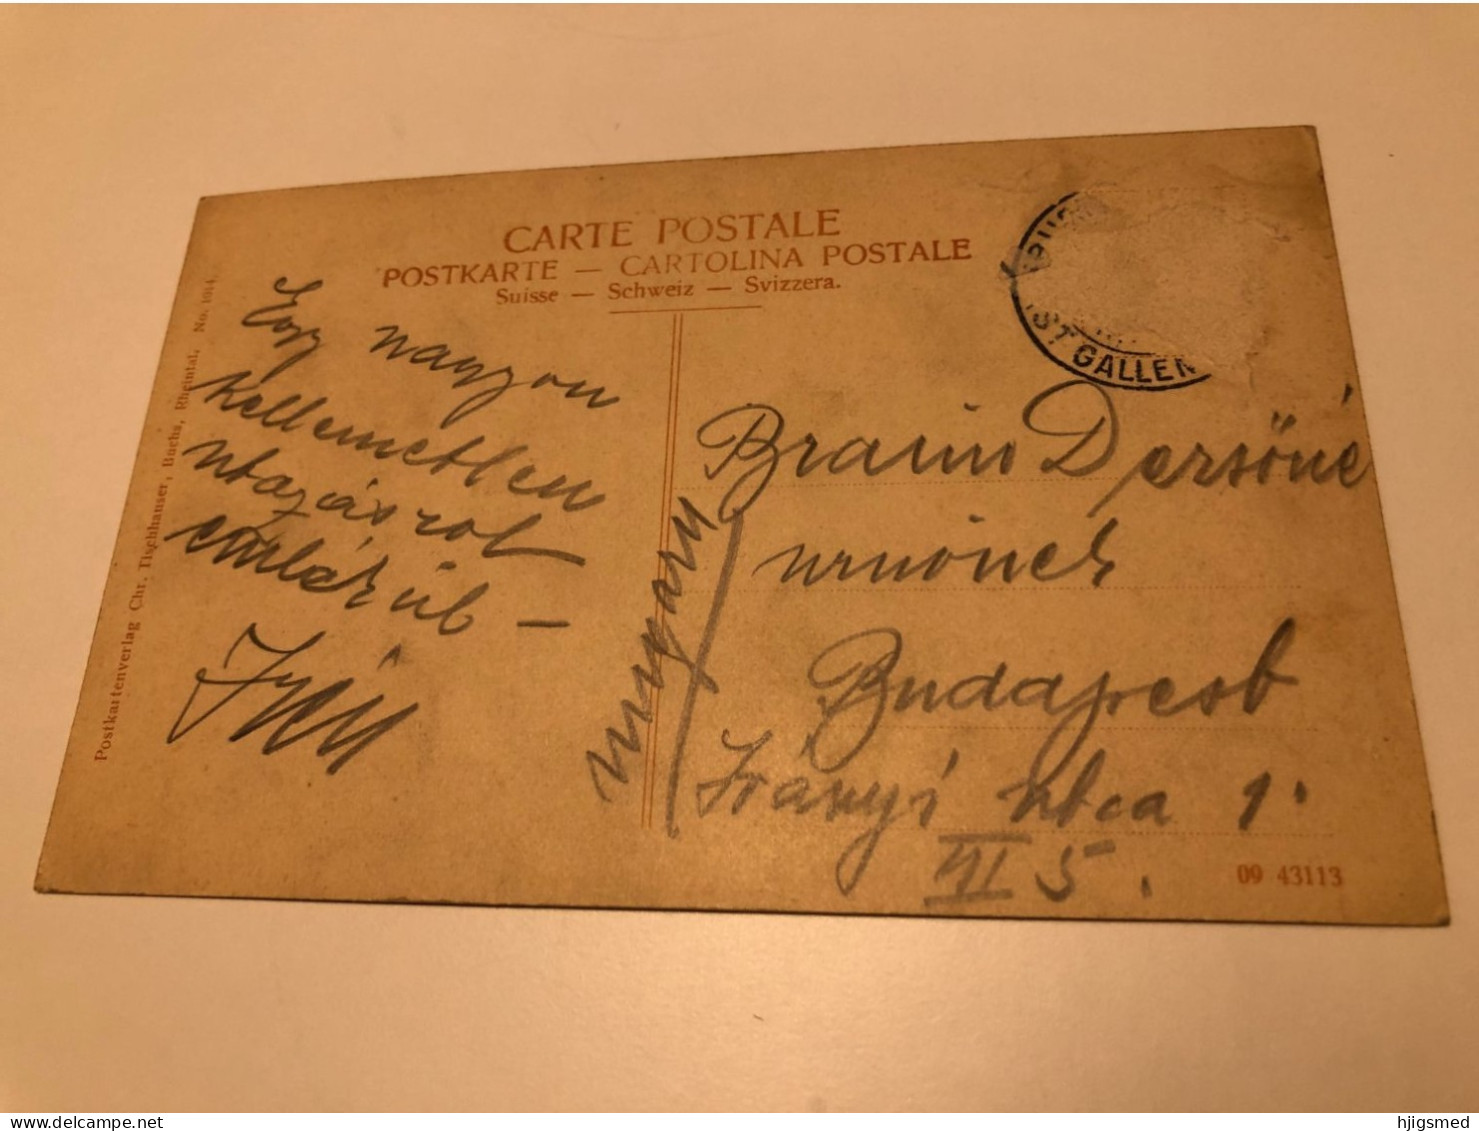 CARTE POSTALE
POSTKARTE — CARTOLINA POSTALE
Suisse — Schweiz — Svizzera.
Postkartenverlag Chr. Tischhauser, Buchs, Rheintal. No. 1014
Egy nagyon
kellemetlen
utazásrol
emlékül –
ST GALLEN
Braun Dersőné
urnőnek
Budapest
Irányi utca 1.
III 5.
09 43113
hjigsmed